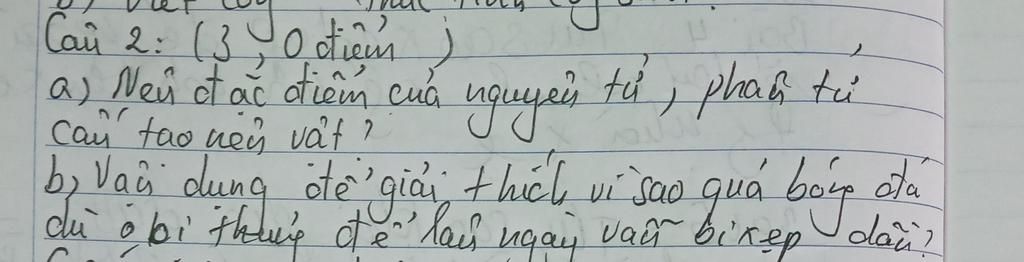 Câu 2: (3,0 điểm)
a) Nêu đặc điểm của nguyên tử, phân tử
cấu tạo nên vật?
b) Vận dụng để giải thích vì sao quả bóng đá
dù o bị thủng để lâu ngày vẫn bị xẹp dần?